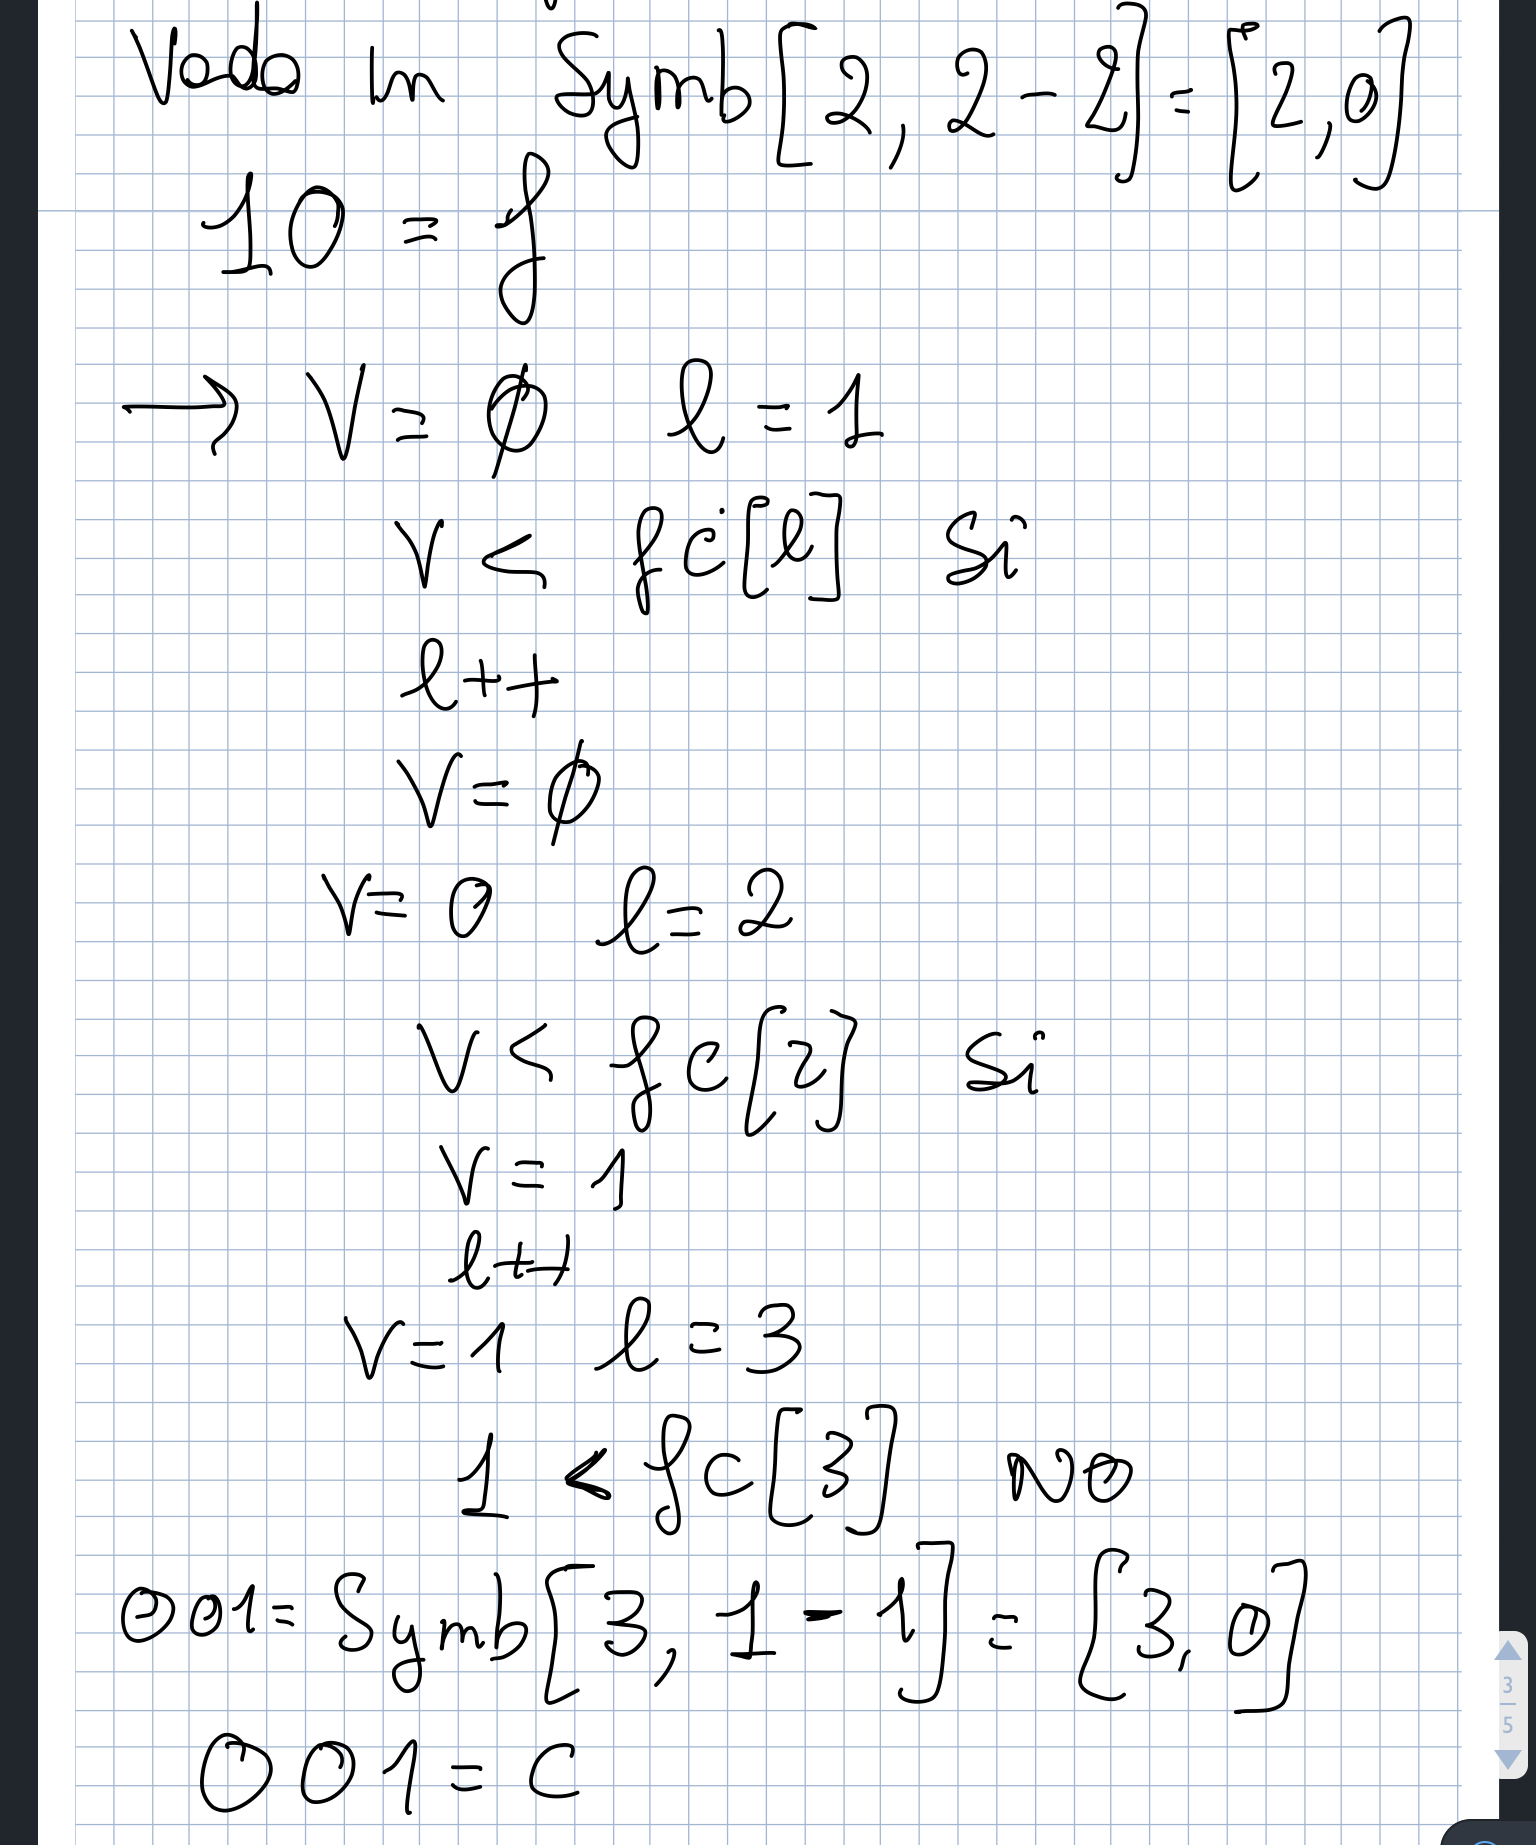 Vado in Symb[2, 2-2] = [2,0]
10 = f
→ V = ∅ l = 1
V < fc[l] Si
l++
V = ∅
V = 0 l = 2
V < fc[2] Si
V = 1
l++
V = 1 l = 3
1 < fc[3] NO
001 = Symb[3, 1-1] = [3,0]
001 = c
3
5